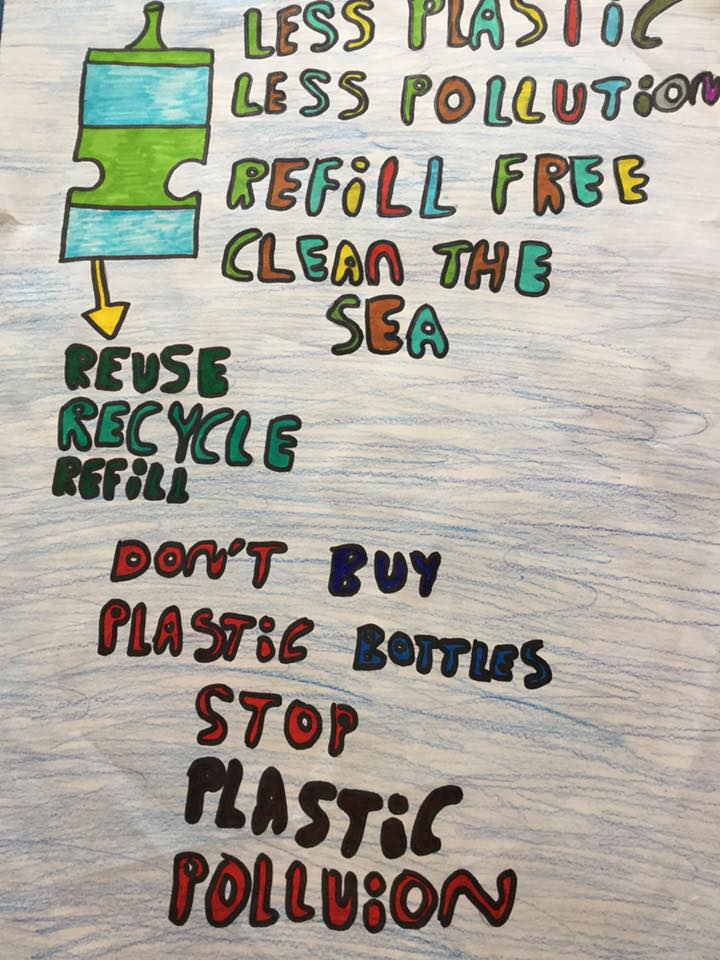 LESS PLASTIC
LESS POLLUTION
REFILL FREE
CLEAN THE
SEA
REUSE
RECYCLE
REFILL
DON'T BUY
PLASTIC BOTTLES
STOP
PLASTIC
POLLUION